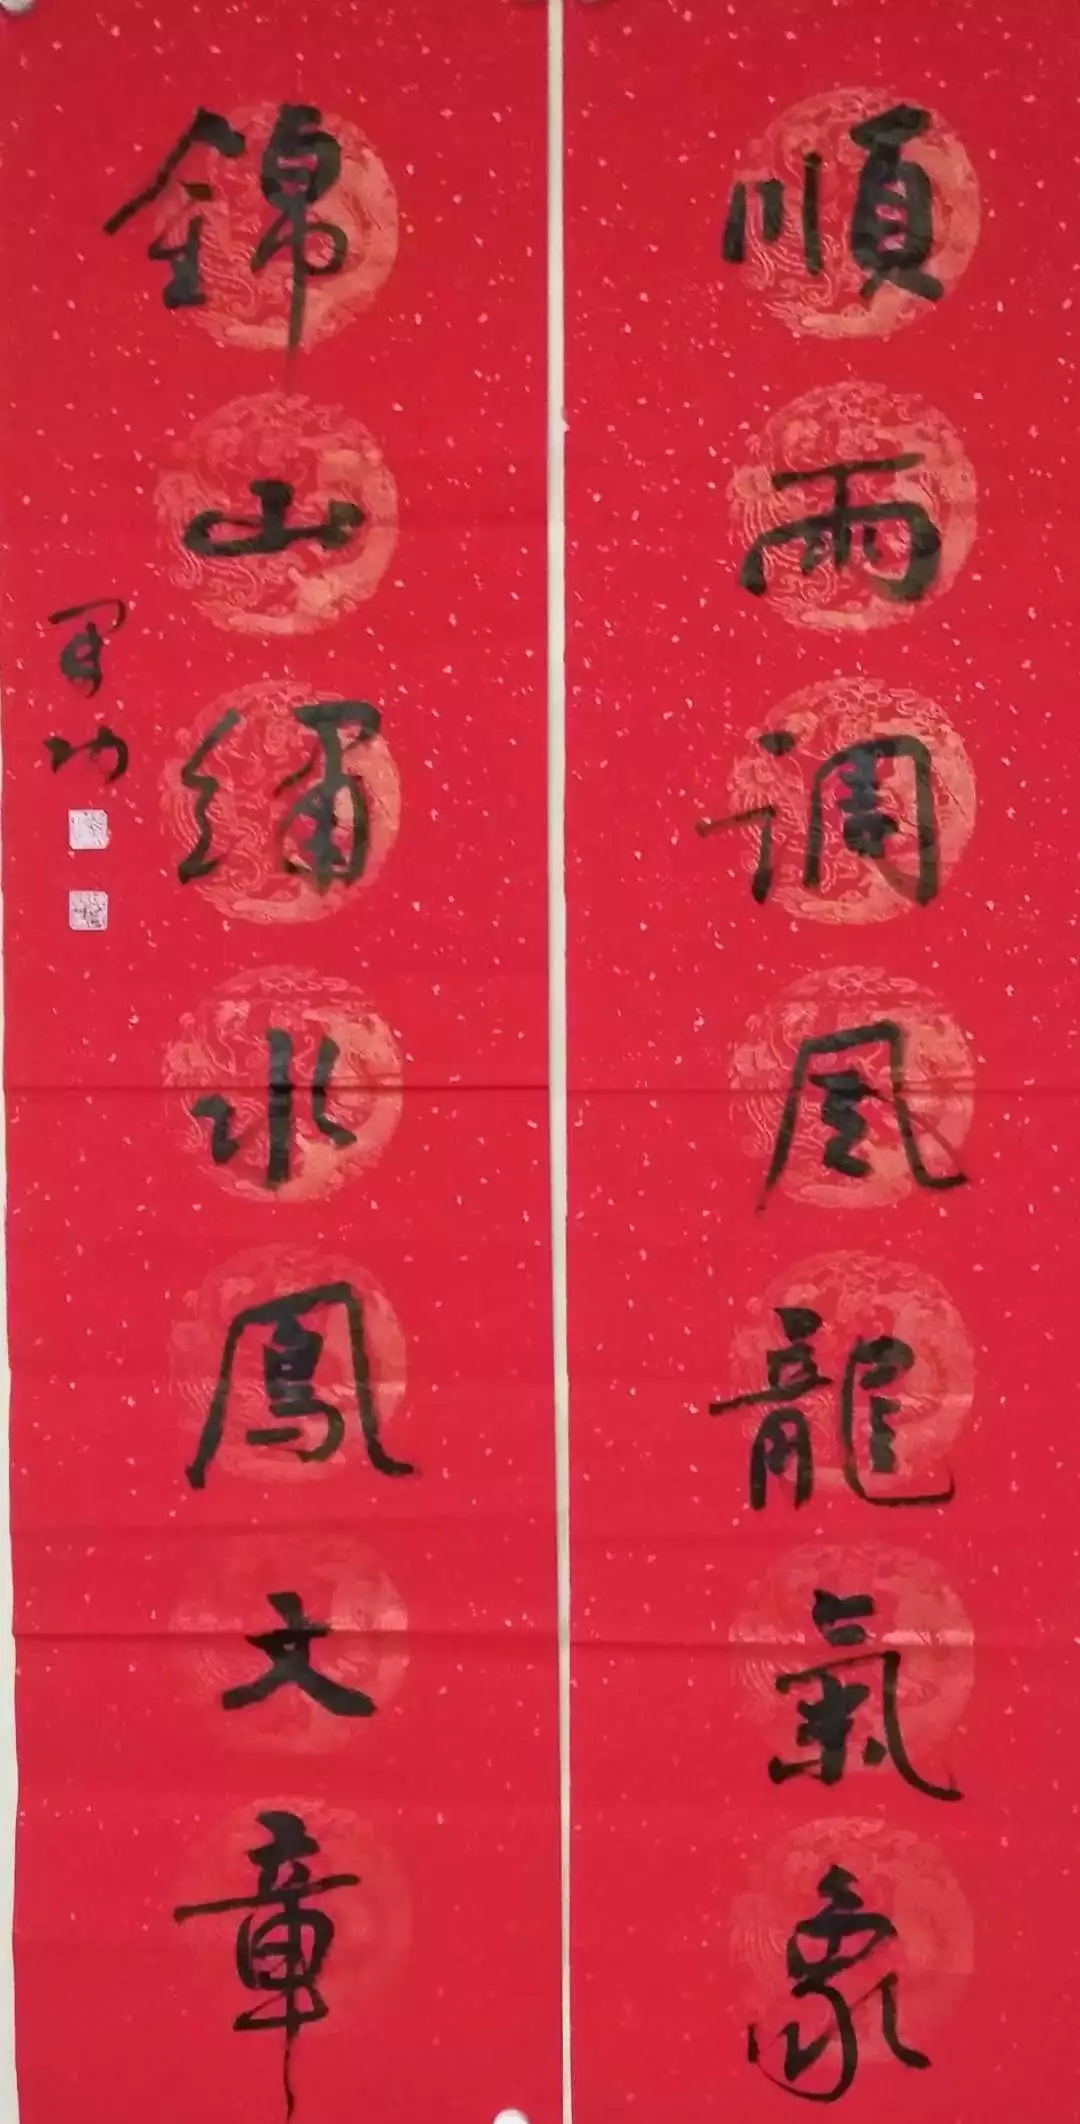 順雨调風龍氣象
錦山繡水鳳文章